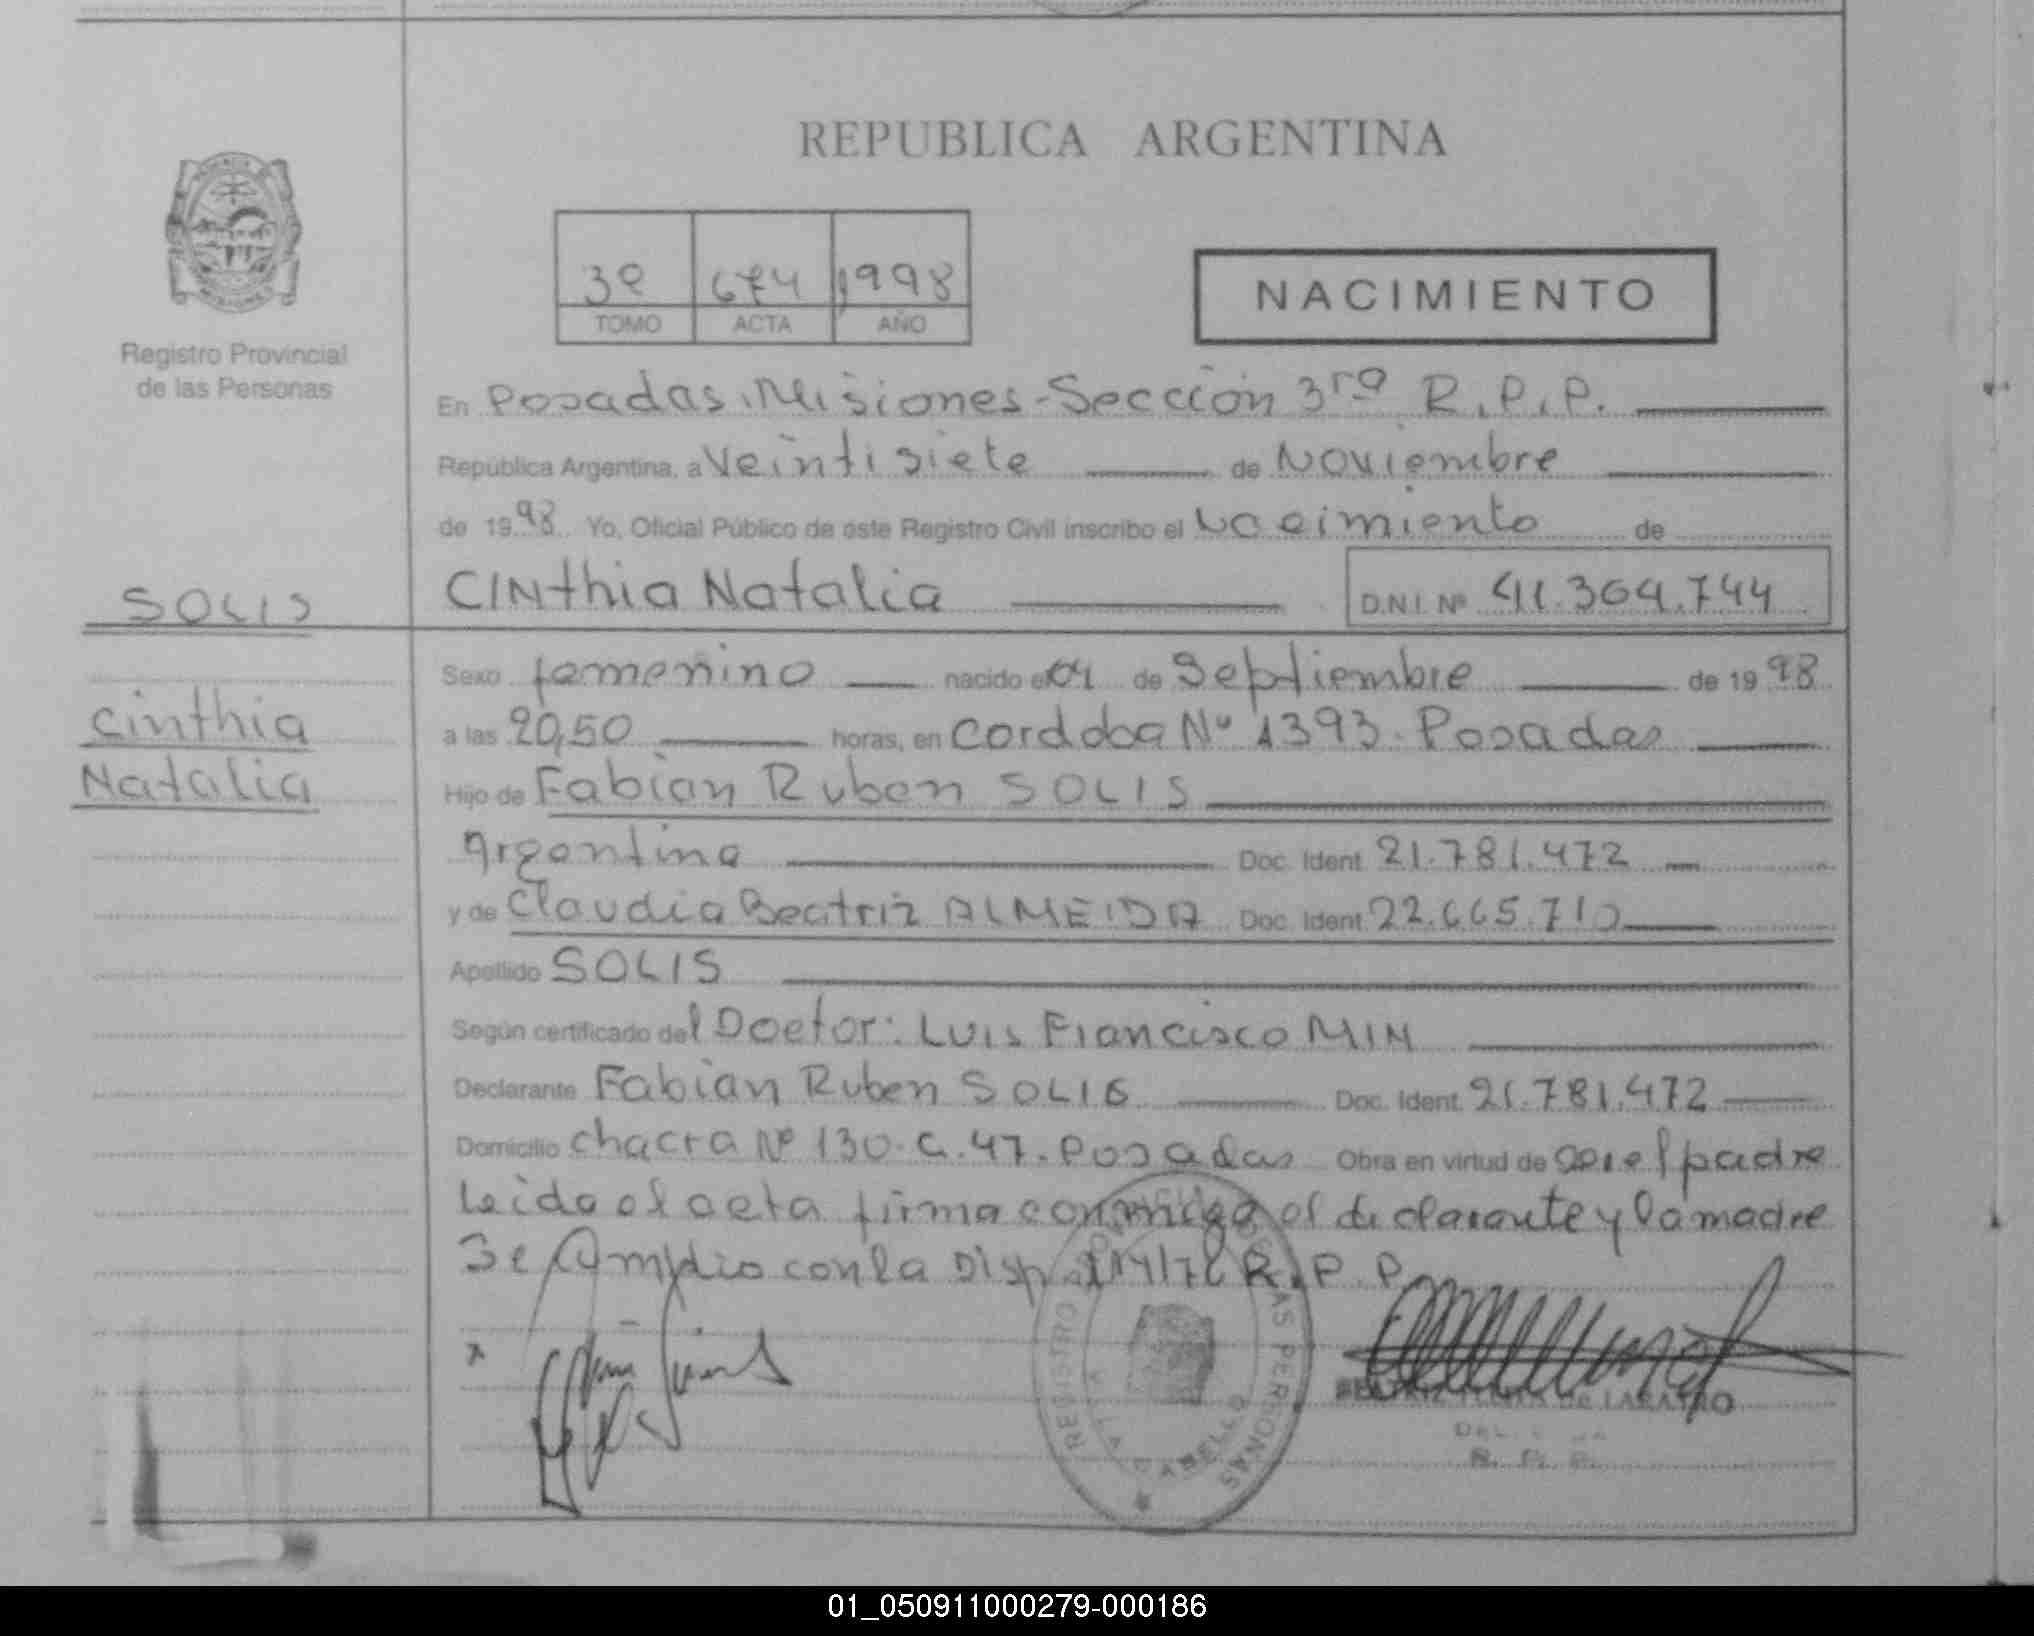 REPUBLICA ARGENTINA
3º 674 1998
TOMO ACTA AÑO
NACIMIENTO
Registro Provincial
de las Personas
En Posadas, Misiones - Sección 3ra R.P.P.
República Argentina, a Veintisiete de Noviembre
de 1998 Yo, Oficial Público de este Registro Civil inscribo el Nacimiento de
SOLIS
CINthia Natalia D.N.I. Nº 41.364.744
Cinthia
Natalia
Sexo femenino nacido el 04 de Septiembre de 1998
a las 20,50 horas, en Cordoba Nº 1393. Posadas
Hijo de Fabian Ruben SOLIS
Argentina Doc. Ident. 21.781.472
y de Claudia Beatriz ALMEIDA Doc. Ident. 22.665.710
Apellido SOLIS
Según certificado del Doctor: Luis Francisco MIN
Declarante Fabian Ruben SOLIS Doc. Ident. 21.781.472
Domicilio Chacra Nº 130. C. 47. Posadas Obra en virtud de ser el padre
Leida el acta firma conmigo el declarante y la madre
Se Cumplio con la Disp. R.P.P.
REGISTRO PROVINCIAL DE LAS PERSONAS
VILLA CABELLO
BEATRIZ de
R. P. P.
01_050911000279-000186